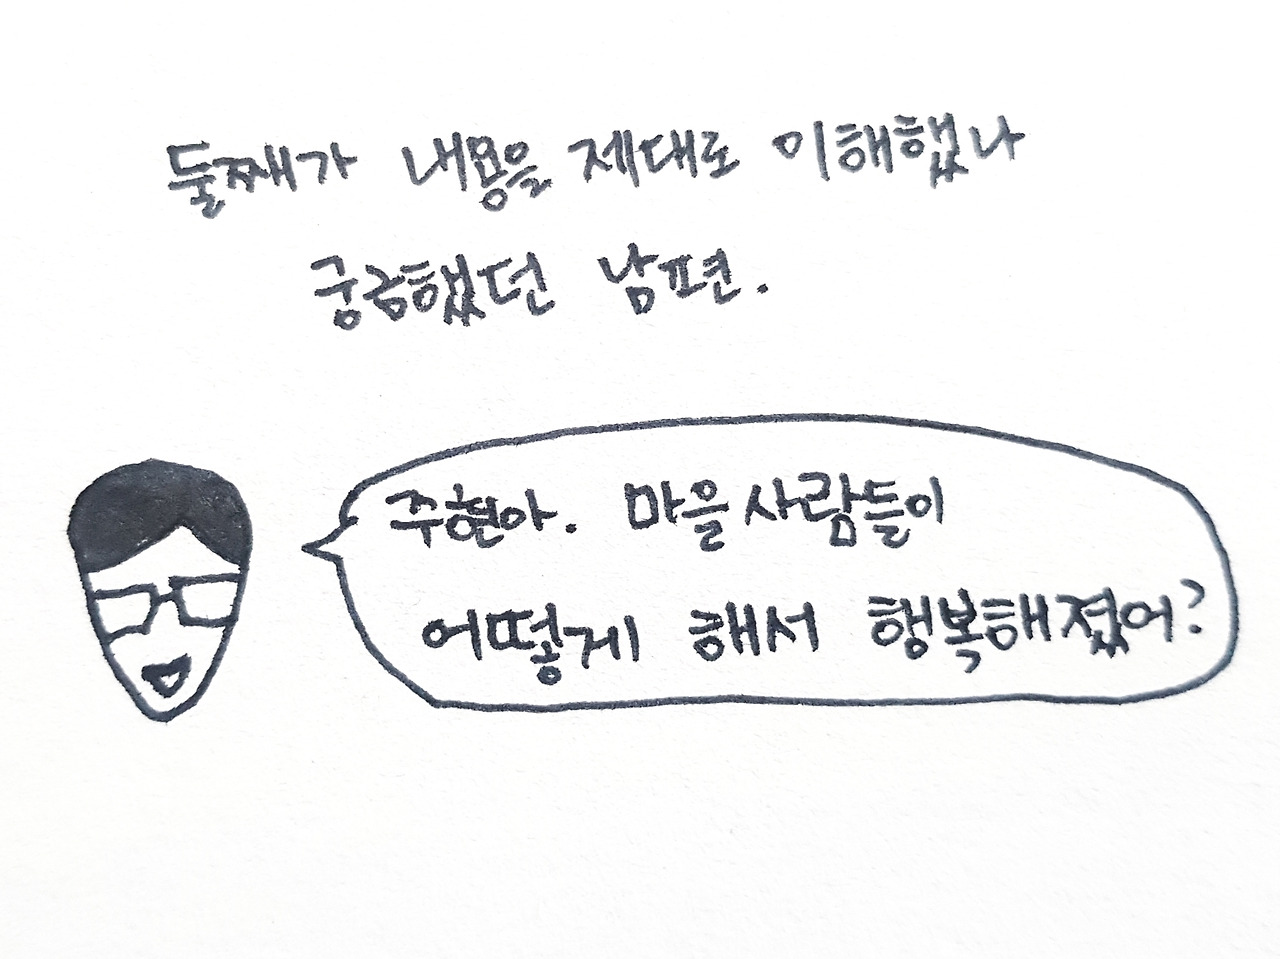 둘째가 내용을 제대로 이해했나
궁금했던 남편.
주현아. 마을사람들이
어떻게 해서 행복해졌어?